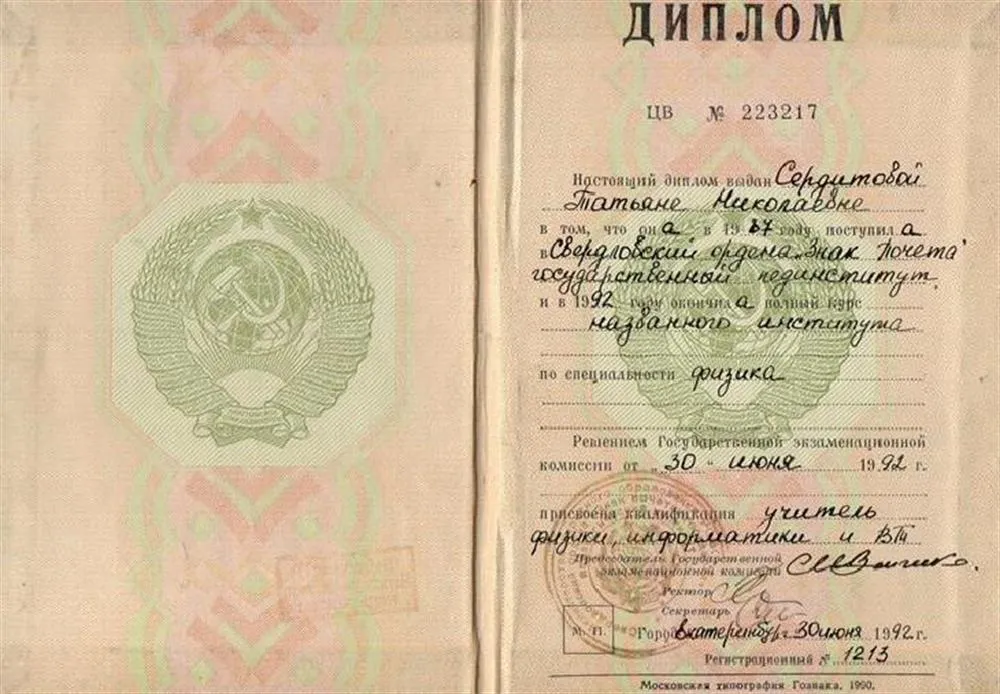 ДИПЛОМ
ЦВ № 223217
Настоящий диплом выдан Сердитовой
Татьяне Николаевне
в том, что она в 1987 году поступила
в Свердловский ордена „Знак Почета"
государственный пединститут
и в 1992 году окончила полный курс
названного института
по специальности физика
Решением Государственной экзаменационной
комиссии от „30" июня 1992 г.
присвоена квалификация учитель
физики, информатики и ВТ
Председатель Государственной
экзаменационной комиссии
Ректор
Секретарь
М. П. Город Екатеринбург 30 июня 1992 г.
Регистрационный № 1213
Московская типография Гознака. 1990.